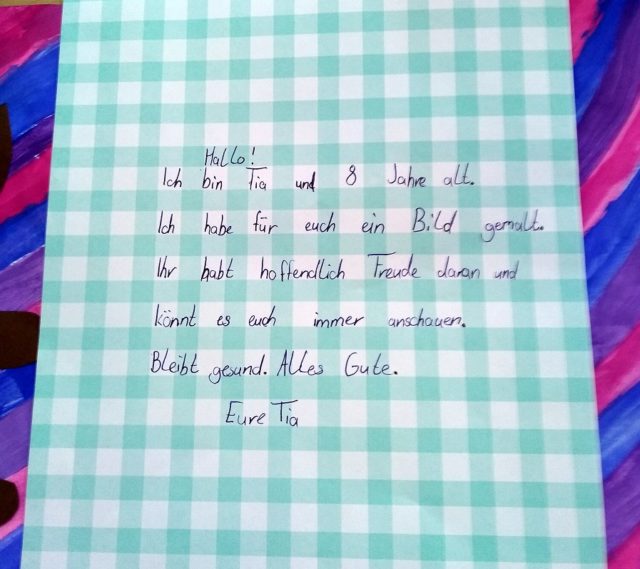 Hallo!
Ich bin Tia und 8 Jahre alt.
Ich habe für euch ein Bild gemalt.
Ihr habt hoffendlich Freude daran und
könnt es euch immer anschauen.
Bleibt gesund. Alles Gute.
Eure Tia